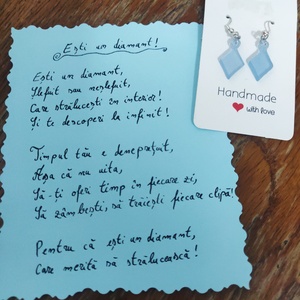 Ești un diamant!
Ești un diamant,
Slefuit sau neslefuit,
Care strălucești în interior!
Și te descoperi la infinit!
Timpul tău e deneprețuit,
Așa că nu uita,
Să-ți oferi timp în fiecare zi,
Să zâmbești, să trăiești fiecare clipă!
Pentru că ești un diamant,
Care merită să strălucească!
Handmade
with love